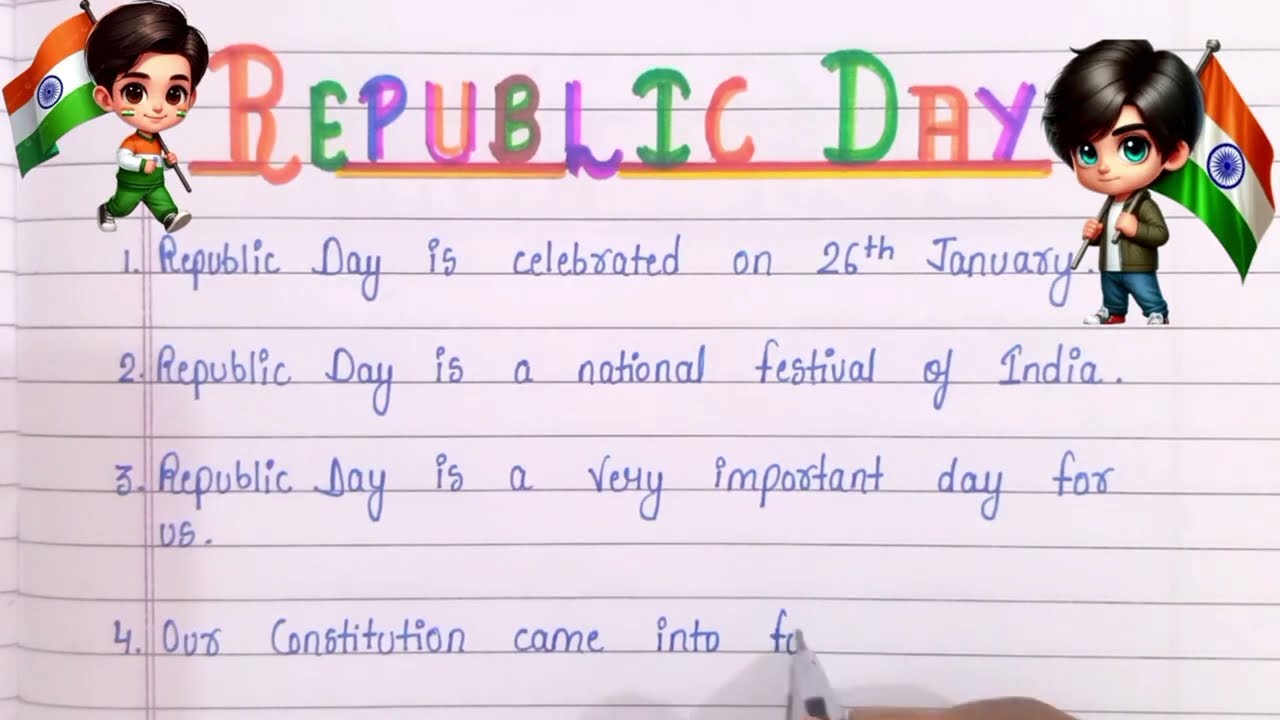 REPUBLIC DAY
1. Republic Day is celebrated on 26th January.
2. Republic Day is a national festival of India.
3. Republic Day is a very important day for
us.
4. Our Constitution came into fo